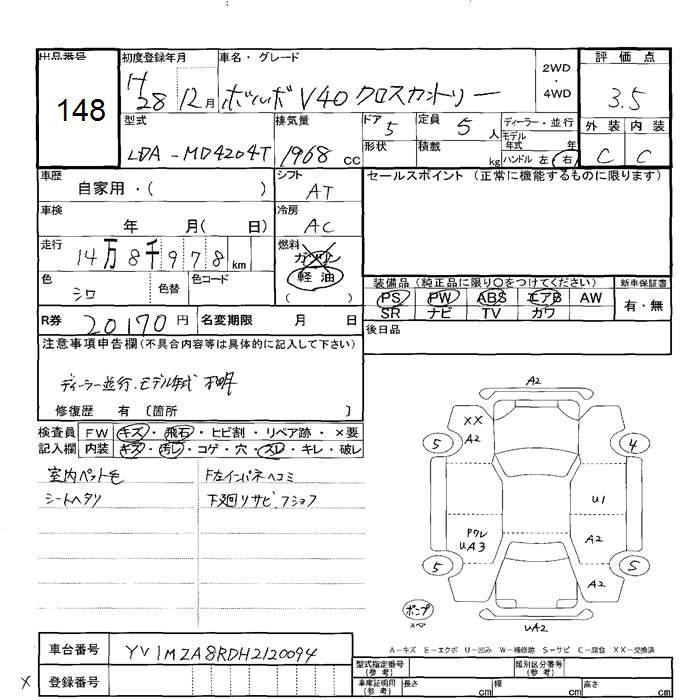 出品番号 初度登録年月 車名・グレード 2WD 評価点
148 H28 12月 ボルボ V40 クロスカントリー ・4WD 3.5
型式 排気量 ドア 5 定員 5人 ディーラー・並行 外装 内装
LDA-MD4204T 1968cc 形状 積載 kg モデル年式 年 ハンドル 左 右 C C
車歴 自家用・( ) シフト AT セールスポイント(正常に機能するものに限ります)
車検 年 月( 日) 冷房 AC
走行 14万8千978km 燃料 ガソリン 軽油 ( )
色 シロ 色替 色コード 装備品(純正品に限り○をつけてください) 新車保証書
PS PW ABS エアB AW 有・無
SR ナビ TV カワ
R券 20170円 名変期限 月 日 後日品
注意事項申告欄(不具合内容等は具体的に記入して下さい)
ディーラー並行.モデル年式 不明
修復歴 有 〔箇所 〕
検査員 FW キズ・飛石・ヒビ割・リペア跡・×要
記入欄 内装 キズ・汚レ・コゲ・穴・スレ・キレ・破レ
室内ペット毛 F左インパネヘコミ
シートヘタリ 下廻リサビ.フショク
A2
XX
A2
5 4
U1
Pワレ
UA3 A2
5 A2 5
ポンプ
スペ
UA2
A-キズ E-エクボ U-凹み W-補修跡 S-サビ C-腐食 XX-交換済
車台番号 YV1MZA8RDH2120094
X 登録番号
型式指定番号(参考) 類別区分番号(参考)
車庫証明用(参考) 長さ cm 幅 cm 高さ cm